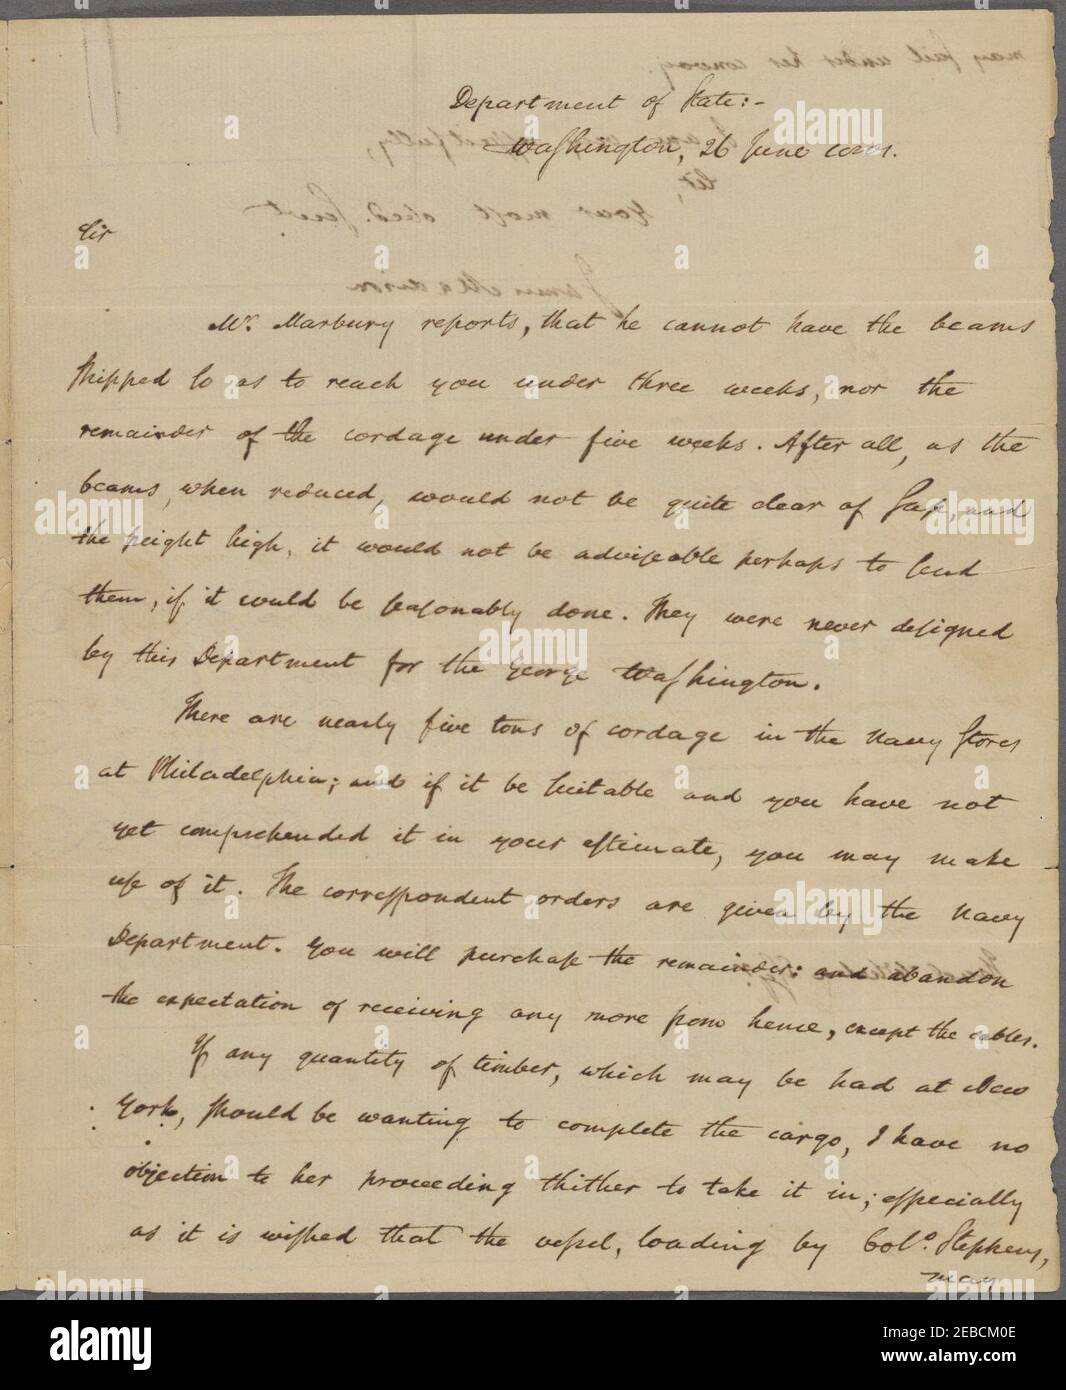 Department of State:-
Washington, 26 June 1801.
Sir
Mr. Marbury reports, that he cannot have the beams
shipped so as to reach you under three weeks, nor the
remainder of the cordage under five weeks. After all, as the
beams, when reduced, would not be quite clear of sap, and
the freight high, it would not be adviseable perhaps to send
them, if it could be seasonably done. They were never designed
by this Department for the George Washington.
There are nearly five tons of cordage in the Navy Stores
at Philadelphia; and if it be suitable and you have not
yet comprehended it in your estimate, you may make
use of it. The correspondent orders are given by the Navy
Department. You will purchase the remainder: and abandon
the expectation of receiving any more from hence, except the cables.
If any quantity of timber, which may be had at New
York, should be wanting to complete the cargo, I have no
objection to her proceeding thither to take it in; especially
as it is wished that the vessel, loading by Colo. Stephens,
may
may sail under her convoy.
Sir,
your most obed. Servt.
James Madison
alamy
Image ID: 2EBCM0E
www.alamy.com